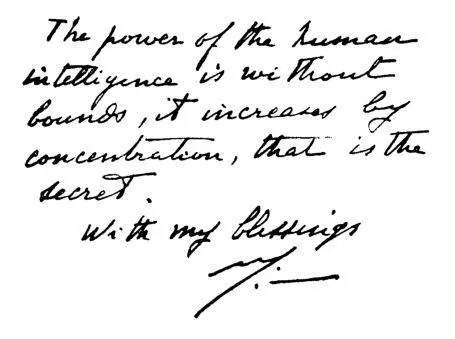 The power of the human
intelligence is without
bounds, it increases by
concentration, that is the
secret.
With my blessings